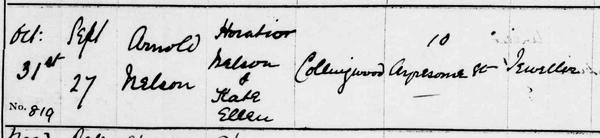 Oct: Sept Arnold Horatior 10
31st 27 Nelson Nelson Collingwood Ayresome St Jeweller
& Kate
No. 819 Ellen